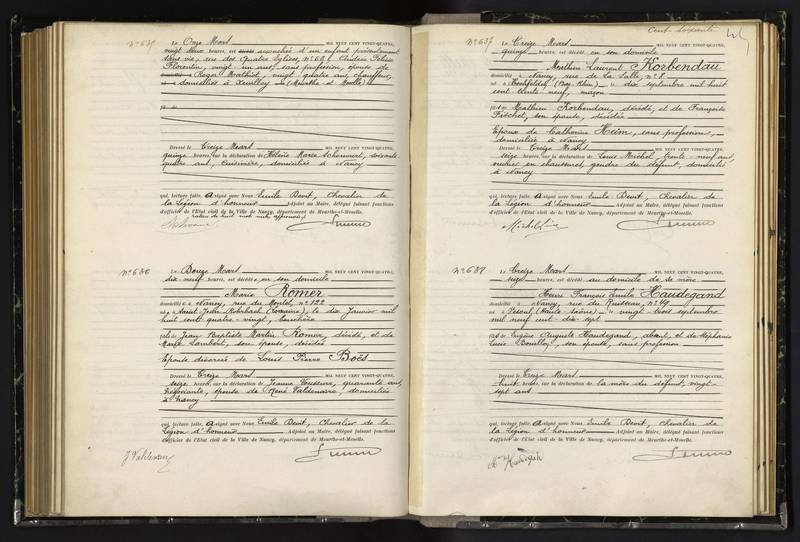 N° 635
Le Onze Mars MIL NEUF CENT VINGT-QUATRE,
vingt heures, est accouchée d'un enfant présentement
sans vie, rue des Quatre Eglises, N° 61,
Florentin, vingt un ans, sans profession, épouse de
Roger Mathiot, vingt quatre ans, chauffeur,
domiciliés à (Meurthe et Moselle)
Dressé le Treize Mars MIL NEUF CENT VINGT-QUATRE,
quinze heures, sur la déclaration de Hélène Marie soixante
quatre ans, domiciliée à Nancy
qui, lecture faite, a signé avec Nous Emile Devit, Chevalier de
la Légion d'honneur Adjoint au Maire, délégué faisant fonctions
d'officier de l'Etat civil de la Ville de Nancy, département de Meurthe-et-Moselle.
N° 636
Le Douze Mars MIL NEUF CENT VINGT-QUATRE,
dix neuf heures, est décédée en son domicile
Marie Romer
domiciliée à Nancy, rue du Montet, n° 122
née à Rohrbach (Lorraine) le dix Janvier mil
huit cent quatre-vingt,
fille de Jean Baptiste Martin Romer, décédé, et de
Lambert, son épouse, décédée
Epouse divorcée de Louis Pierre Boës
Dressé le Treize Mars MIL NEUF CENT VINGT-QUATRE,
seize heures, sur la déclaration de Jeanne quarante ans,
négociante, épouse de René Valdenaire, domiciliée
à Nancy
qui, lecture faite, a signé avec Nous Emile Devit, Chevalier de la
Légion d'honneur Adjoint au Maire, délégué faisant fonctions
d'officier de l'Etat civil de la Ville de Nancy, département de Meurthe-et-Moselle.
J Valdenaire
Cent soixante
N° 637
Le Treize Mars MIL NEUF CENT VINGT-QUATRE,
quinze heures, est décédé en son domicile
Mathieu Laurent Korbendau
domicilié à Nancy, rue de la Salle, n° 8
né à Hochfelden (Bas-Rhin) le dix septembre mil huit
cent trente neuf, maçon
fils de Mathieu Korbendau, décédé, et de Françoise
Fischel, son épouse, décédée
Epoux de Catherine Heim, sans profession,
domiciliée à Nancy
Dressé le Treize Mars MIL NEUF CENT VINGT-QUATRE,
seize heures, sur la déclaration de Louis Michel, trente neuf ans,
ouvrier en chaussures, gendre du défunt, domicilié
à Nancy
qui, lecture faite, a signé avec Nous Emile Devit, Chevalier de
la Légion d'honneur Adjoint au Maire, délégué faisant fonctions
d'officier de l'Etat civil de la Ville de Nancy, département de Meurthe-et-Moselle.
N° 638
Le Treize Mars MIL NEUF CENT VINGT-QUATRE,
sept heures, est décédé au domicile de sa mère
Henri François Emile Haudegand
domicilié à Nancy, rue du Ruisseau, N° 49
né à Vesoul (Haute Saône) le vingt trois septembre
mil neuf cent dix sept
fils de Eugène Auguste Haudegand, absent, et de Stéphanie
Lucie son épouse, sans profession
Dressé le Treize Mars MIL NEUF CENT VINGT-QUATRE,
huit heures, sur la déclaration de la mère du défunt, vingt-
sept ans
qui, lecture faite, a signé avec Nous Emile Devit, Chevalier de
la Légion d'honneur Adjoint au Maire, délégué faisant fonctions
d'officier de l'Etat civil de la Ville de Nancy, département de Meurthe-et-Moselle.